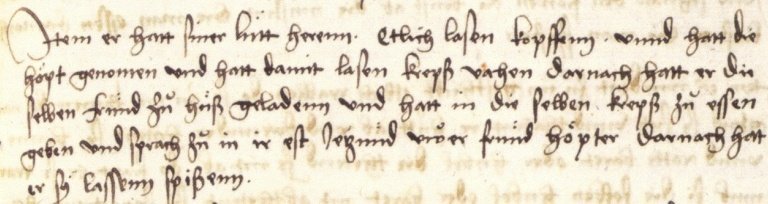 Item er hatt siner lütt herenn. Etlich lasen kopffenn. vnnd hatt die
höpt genomen vnd hatt damit lasen krepß vahen darnach hatt er die
selben fründ zů huß geladenn vnd hatt in die selben krepß zů essen
geben vnd sprach zů in ir est Jetzund üwer fründ höpter darnach hatt
er sÿ lassenn spißenn.